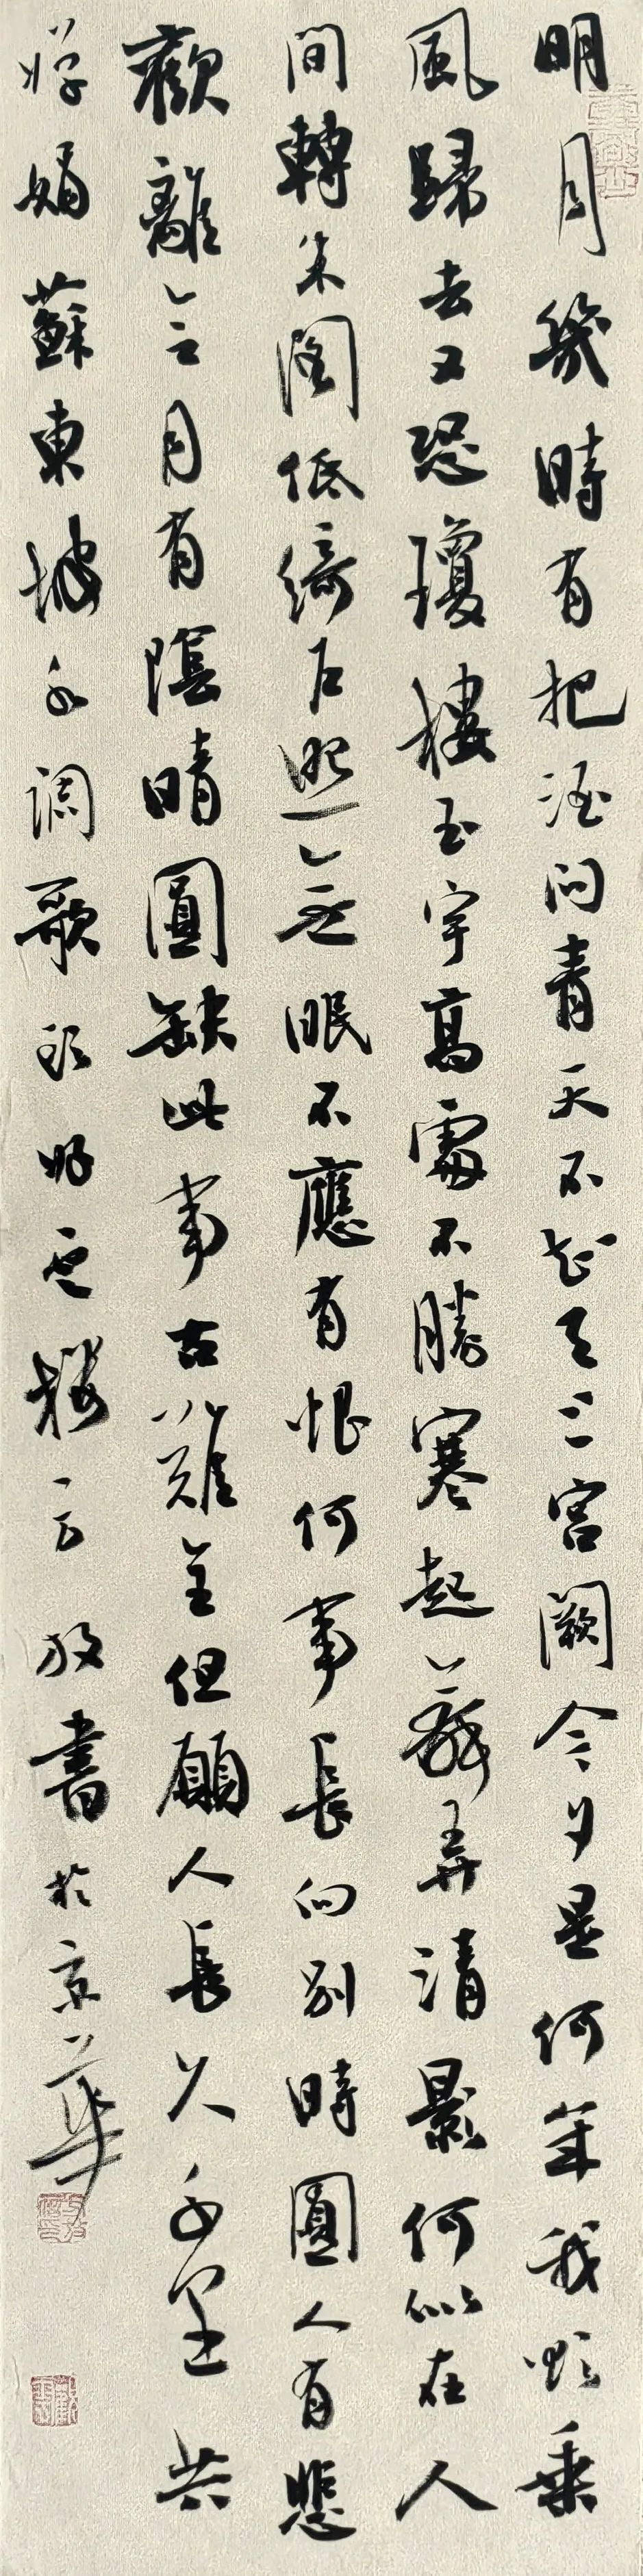 明月幾時有把酒問青天不知天上宮闕今夕是何年我欲乘
風歸去又恐瓊樓玉宇高處不勝寒起舞弄清影何似在人
間轉朱閣低綺户照無眠不應有恨何事長向别時圓人有悲
歡離合月有陰晴圓缺此事古難全但願人長久千里共
嬋娟蘇東坡水調歌頭好樓方放書於京華